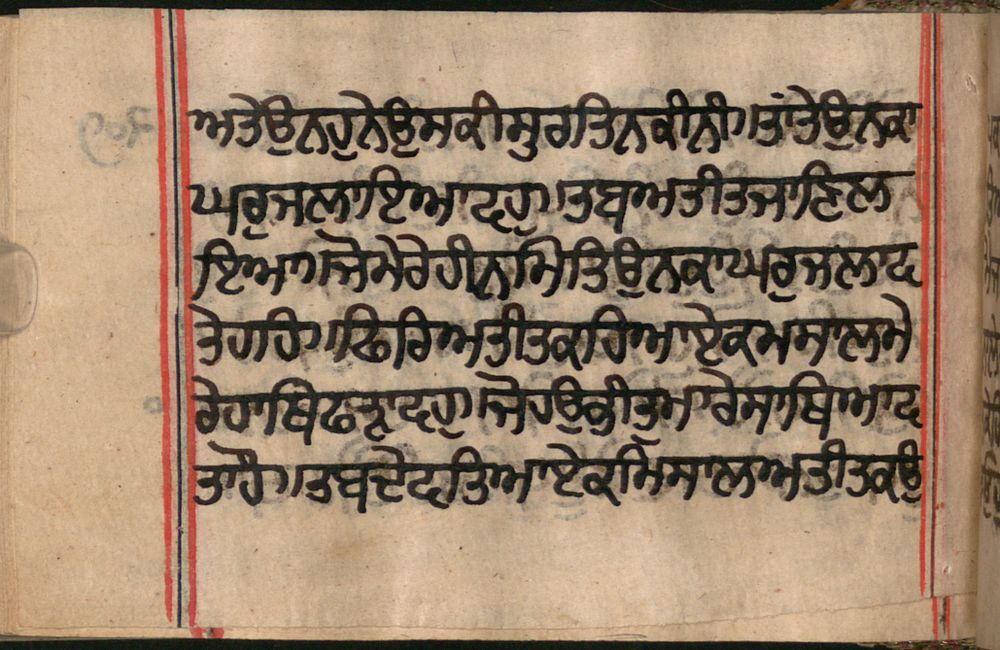 ਅਤੇਉਨਹੁਨੇਉਸਕੀਸੁਰਤਿਨਕੀਨੀ।ਤਾਂਤੇਉਨਕਾ
ਘਰੁਜਲਾਇਆਦਹੁ।ਤਬਅਤੀਤਜਾਣਿਲ
ਇਆ।ਜੋਮੇਰੇਹੀਨਮਿਤਿਉਨਕਾਘਰੁਜਲਾਦ
ਤੇਹਹਿ।ਫਿਰਿਅਤੀਤਕਹਿਆਏਕਮਸਾਲਮੇ
ਰੇਹਾਥਿਫੜਾਦਹੁ।ਜੋਹਉਭੀਤੁਮਾਰੇਸਾਥਿਆਦ
ਤਾਹੌ।ਤਬਦੇਦਤਿਆਏਕਮਿਸਾਲਅਤੀਤਕਉ